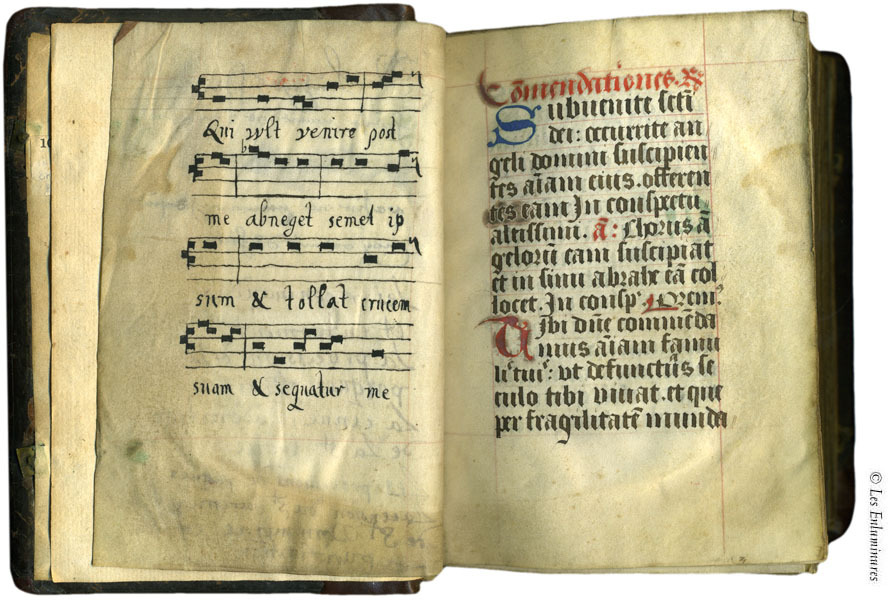 Qui vlt venire post
me abneget semet ip
sum & tollat crucem
suam & sequatur me
Cōmendationes. R̃
Subuenite scti
dei: occurrite an
geli domini suscipien
tes aīam eius. offeren
tes eam In conspectu
altissimi. ā: Chorus ā
gelorū eam suscipiat
et in sinu abrahe eā col
locet. In consp. Orem⁹
Tibi dn̄e commēda
mus aīam famu
li tui: vt defunctus se
culo tibi viuat. et que
per fragilitatē munda
© Les Enluminures